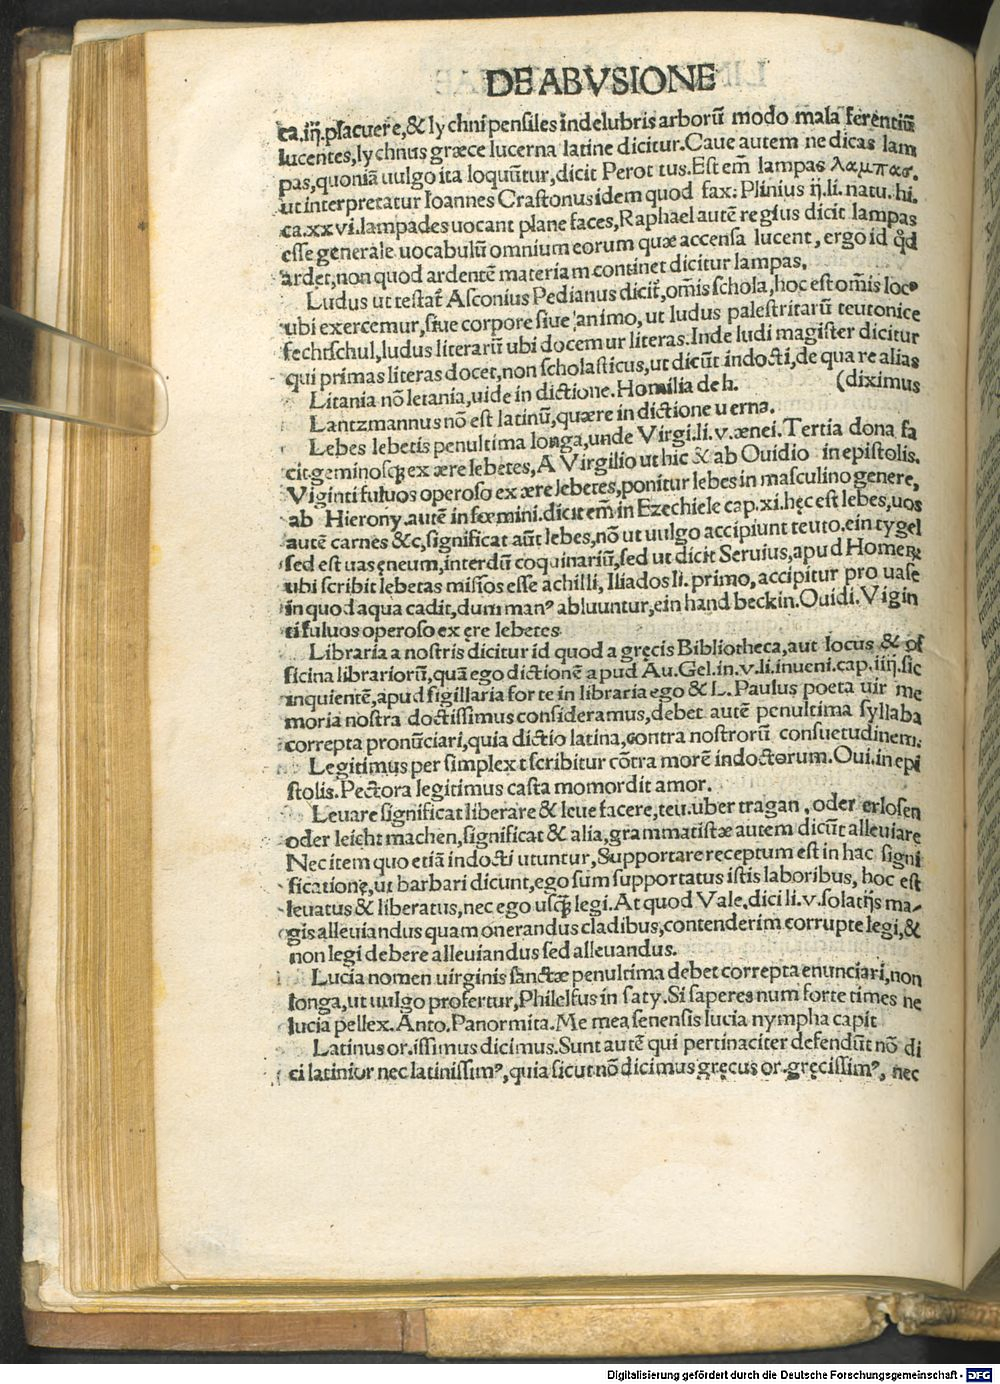 DE ABVSIONE
ca.iij.placuere,& lychni pensiles in delubris arborū modo mala ferentiū
lucentes,lychnus græce lucerna latine dicitur.Caue autem ne dicas lam
pas,quoniā uulgo ita loquūtur,dicit Perottus.Est em̄ lampas λαμπασ.
ut interpretatur Ioannes Crastonus idem quod fax: Plinius ij.li.natu.hi.
ca.xxvi.lampades uocant plane faces,Raphael autē regius dicit lampas
esse generale uocabulū omnium eorum quæ accensa lucent,ergo id qd̄
ardet,non quod ardentē materiam continet dicitur lampas.
Ludus ut testat̄ Asconius Pedianus dicit̄,om̄is schola,hoc est om̄is locꝰ
ubi exercemur,siue corpore siue animo,ut ludus palestritarū teutonice
fechtschul,ludus literarū ubi docemur literas.Inde ludi magister dicitur
qui primas literas docet,non scholasticus,ut dicūt indocti,de qua re alias
Litania nō letania,uide in dictione.Homilia de h. (diximus
Lantzmannus nō est latinū,quære in dictione uerna.
Lebes lebetis penultima longa,unde Virgi.li.v.ænei.Tertia dona fa
cit geminosqꝫ ex ære lebetes,A Virgilio ut hic & ab Ouidio in epistolis.
Viginti fuluos operoso ex ære lebetes,ponitur lebes in masculino genere,
ab Hierony.autē in fœmini.dicit em̄ in Ezechiele cap.xi.hęc est lebes,uos
autē carnes &c,significat aūt lebes,nō ut uulgo accipiunt teuto.ein tygel
sed est uas ęneum,interdū coquinariū,sed ut dicit Seruius,apud Homeꝝ
ubi scribit lebetas missos esse achilli,Iliados li.primo,accipitur pro uase
in quod aqua cadit,dum manꝰ abluuntur,ein hand beckin.Ouidi.Vigin
ti fuluos operoso ex ęre lebetes
Libraria a nostris dicitur id quod a gręcis Bibliotheca,aut locus & of
ficina librariorū,quā ego dictionē apud Au.Gel.in.v.li.inueni.cap.iiij.sic
inquientē,apud sigillaria forte in libraria ego & L.Paulus poeta uir me
moria nostra doctissimus consideramus,debet autē penultima syllaba
correpta pronūciari,quia dictio latina,contra nostrorū consuetudinem.
Legitimus per simplex t scribitur cōtra morē indoctorum.Oui.in epi
stolis.Pectora legitimus casta momordit amor.
Leuare significat liberare & leue facere,teu.uber tragan,oder erlosen
oder leicht machen,significat & alia,grammatistæ autem dicūt alleuiare
Nec item quo etiā indocti utuntur,Supportare receptum est in hac signi
ficatione,ut barbari dicunt,ego sum supportatus istis laboribus,hoc est
leuatus & liberatus,nec ego usqꝫ legi.At quod Vale.dici li.v.solatijs ma-
gis alleuiandus quam onerandus cladibus,contenderim corrupte legi,&
non legi debere alleuiandus sed alleuandus.
Lucia nomen uirginis sanctæ penultima debet correpta enunciari,non
longa,ut uulgo profertur,Philelfus in saty.Si saperes num forte times ne
lucia pellex.Anto.Panormita.Me mea senensis lucia nympha capit
Latinus or.issimus dicimus.Sunt autē qui pertinaciter defendūt nō di
ci latinior nec latinissimꝰ,quia sicut nō dicimus gręcus or.gręcissimꝰ,nec
Digitalisierung gefördert durch die Deutsche Forschungsgemeinschaft - DFG